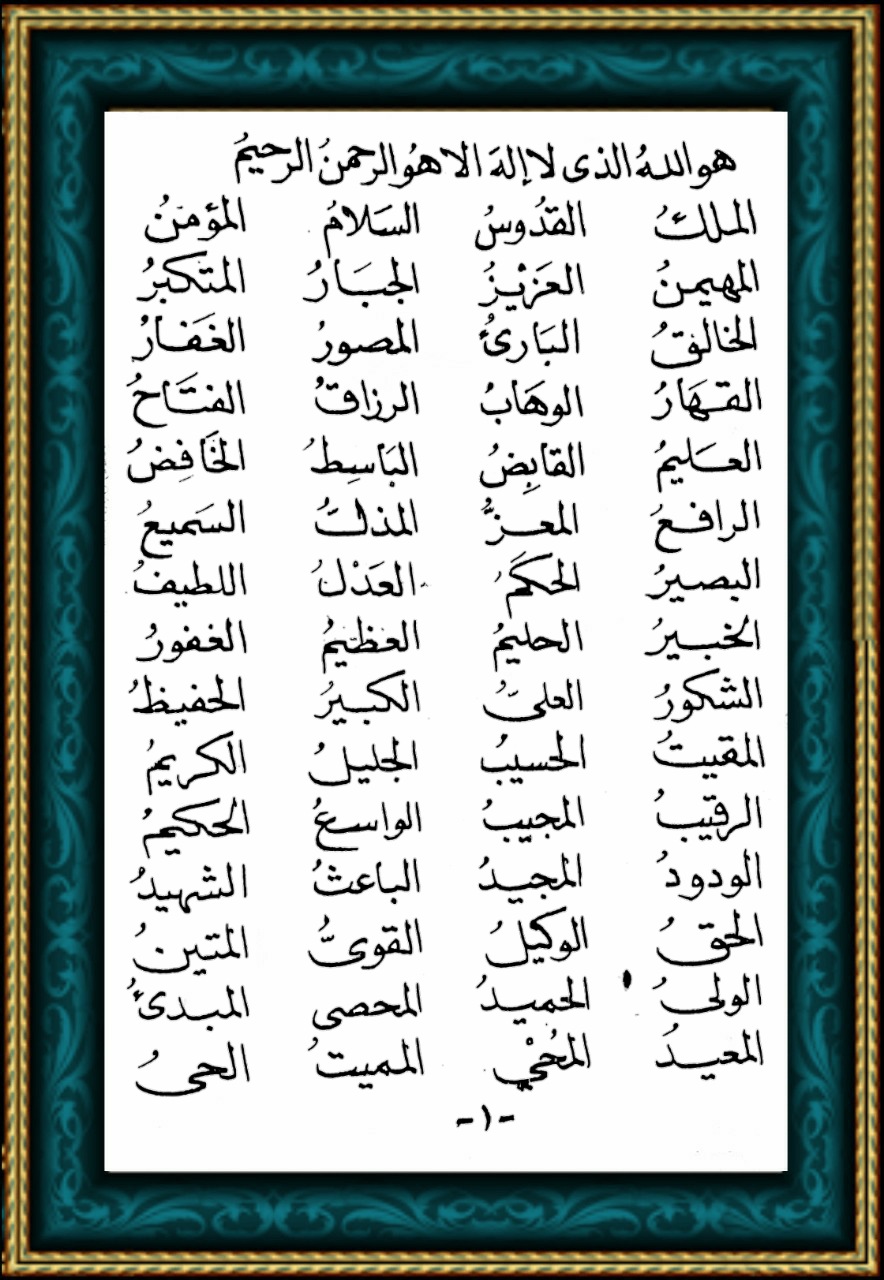 هو الله الذى لا إله الا هُو الرحمنُ الرحيمُ
الملكُ القدُوسُ السَلامُ المؤمنُ
المهيمنُ العَزيْزُ الجبَارُ المتكبرُ
الخالقُ البَارئُ المصورُ الغَفارُ
القهَارُ الوهَابُ الرزاقُ الفتَاحُ
العَليمُ القابِضُ البَاسِطُ الخَافِضُ
الرافعُ المعزُّ المذلُّ السَميعُ
البصيرُ الحكَمُ العَدْلُ اللطيفُ
الخبيرُ الحليمُ العظيمُ الغفورُ
الشكورُ العلىُّ الكبيرُ الحفيظُ
المقيتُ الحسيبُ الجليلُ الكريمُ
الرقيبُ المجيبُ الواسعُ الحكيمُ
الودودُ المجيدُ الباعثُ الشهيدُ
الحقُ الوكيلُ القوىُّ المتينُ
الولىُ الحميدُ المحصى المبدئُ
المعيدُ المُحْيي المميتُ الحىُ
-١-